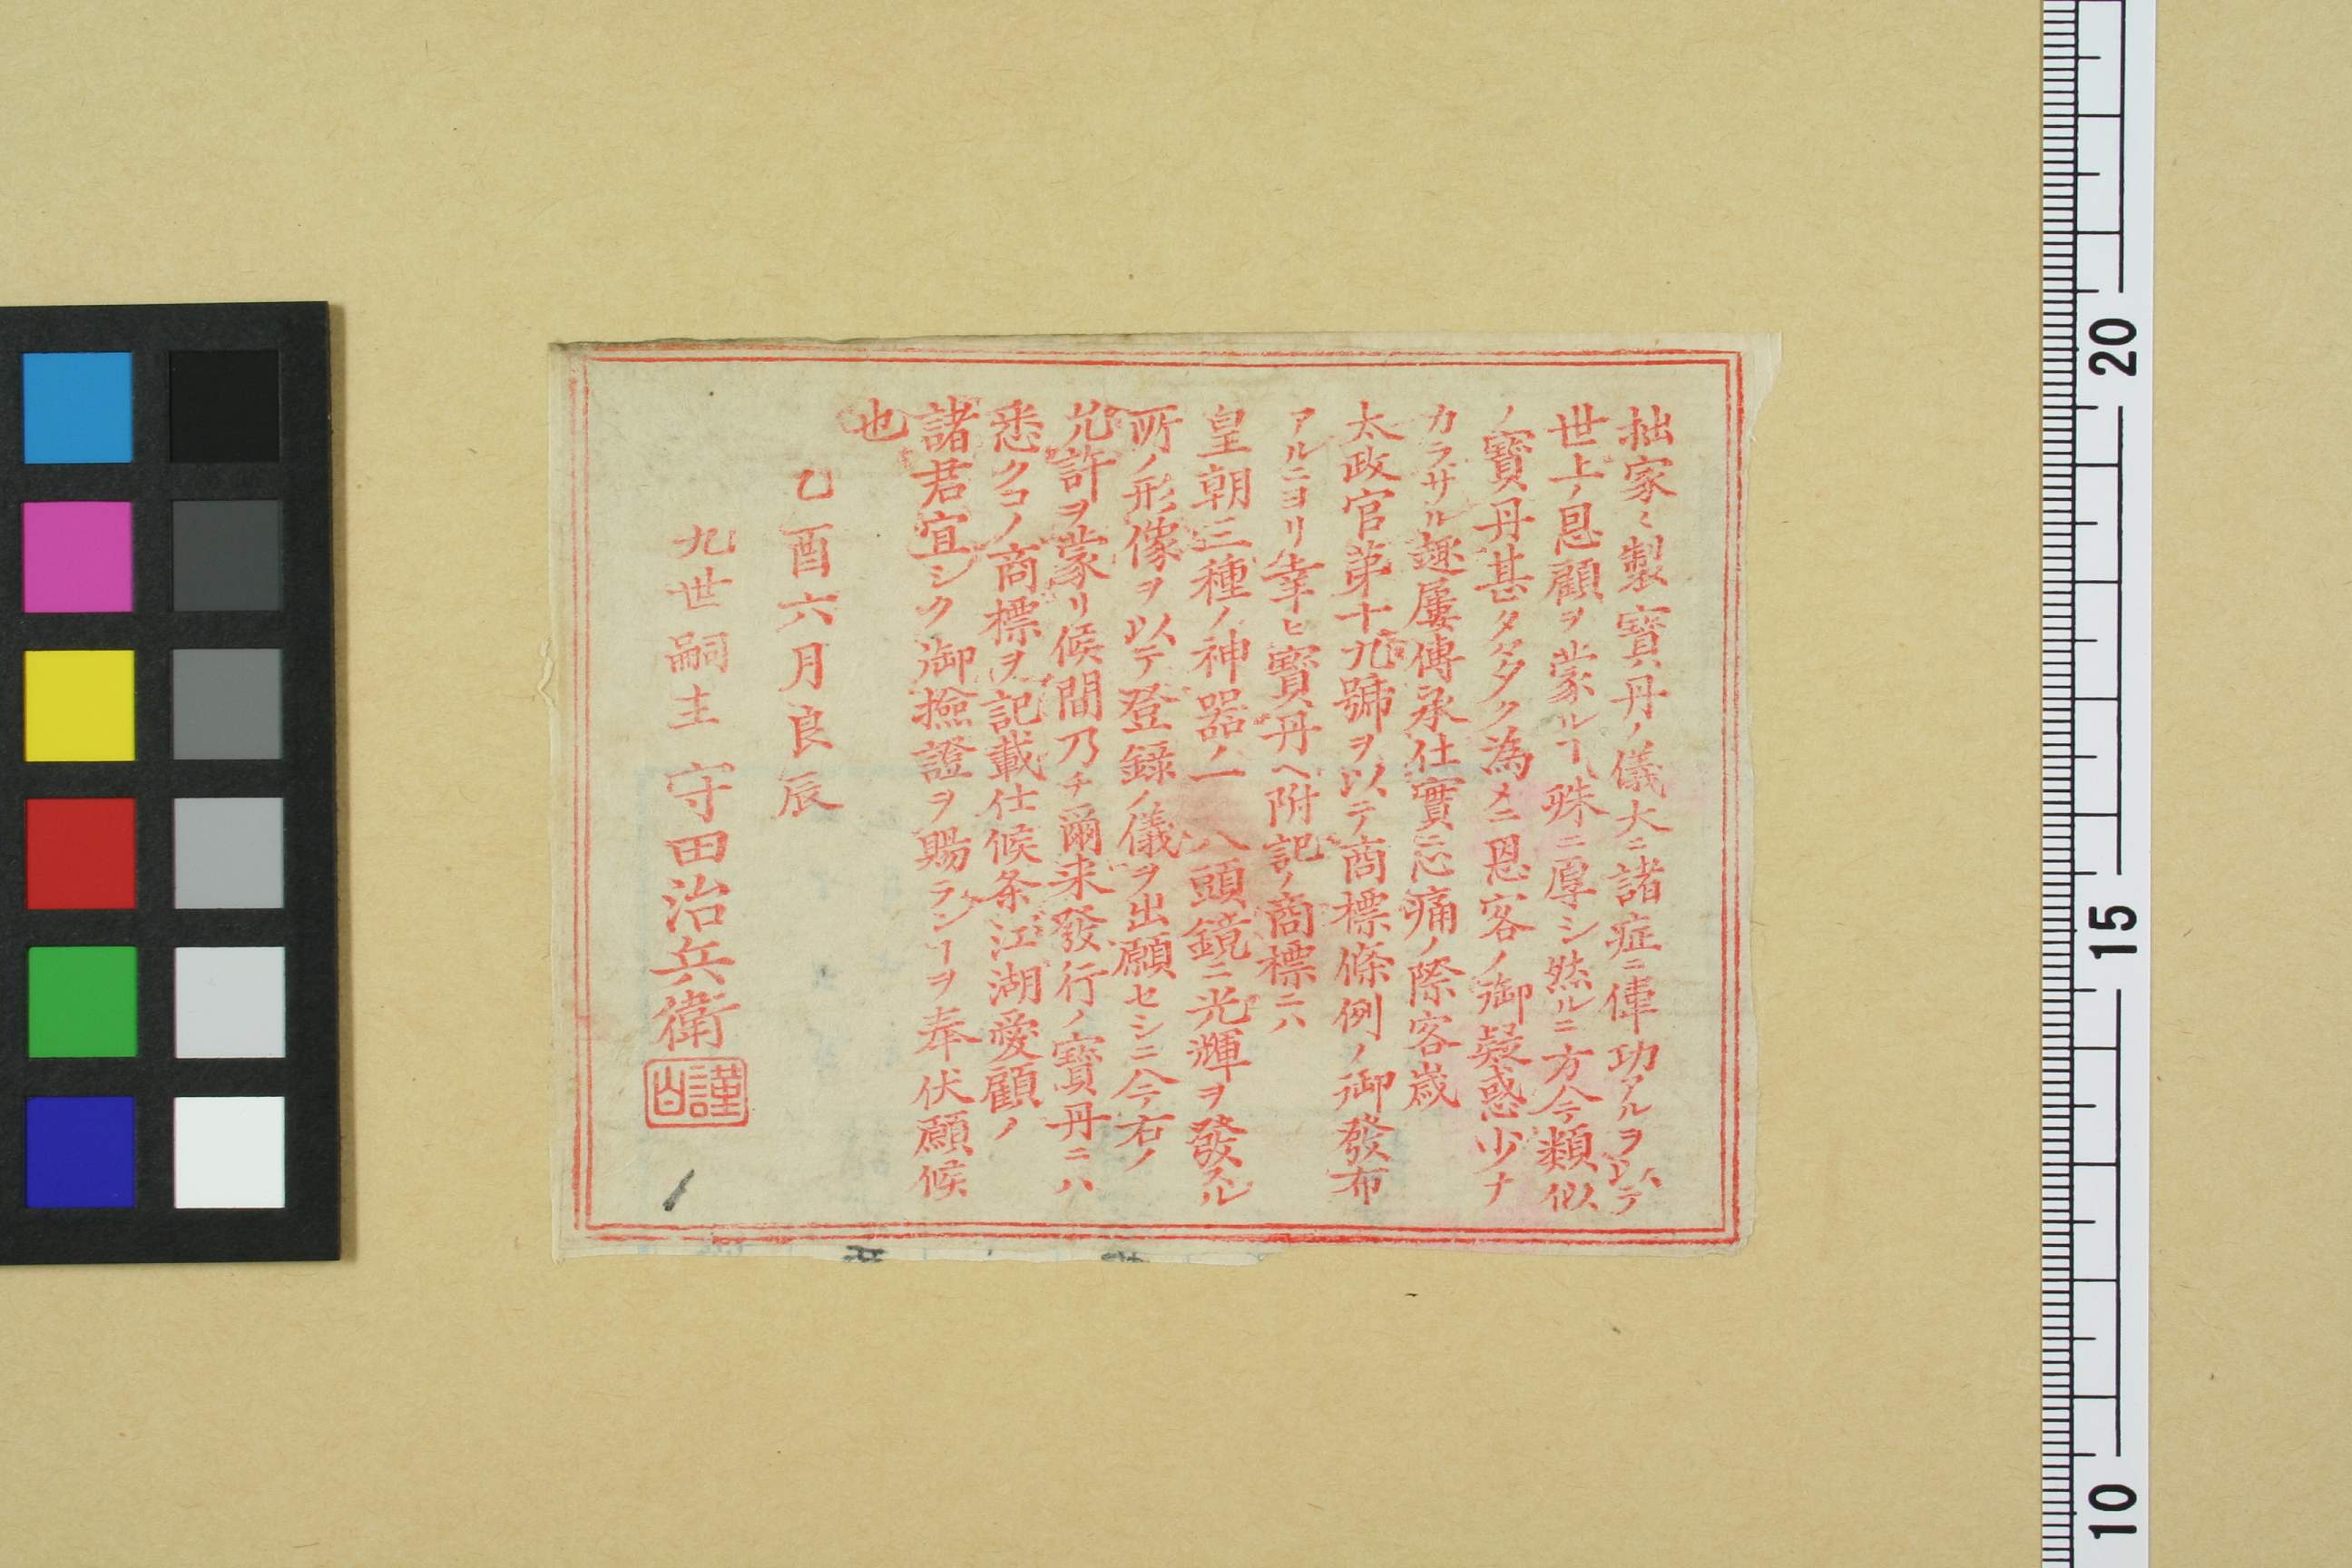 拙家ミ製寳丹ノ儀大ニ諸症ニ俥功アルヲ以テ
世上ノ恩顧ヲ蒙ルヿ殊ニ厚シ然ルニ方今類似
ノ寳丹甚タタタク為メニ恩客ノ御疑惑少ナ
カラサル趣屢傳承仕實ニ心痛ノ際客歳
太政官第十九號ヲ以テ商標條例ノ御發布
アルニヨリ幸ヒ寳丹ヘ附記ノ商標ニハ
皇朝三種ノ神器ノ一 八頭鏡ニ光輝ヲ發スル
所ノ形像ヲ以テ登録ノ儀ヲ出願セシニ今右ノ
允許ヲ蒙リ候間乃チ爾来發行ノ寳丹ニハ
悉クコノ商標ヲ記載仕候条江湖愛顧ノ
諸君宜シク御撿證ヲ賜ランヿヲ奉伏願候
也
乙酉六月良辰
九世嗣主 守田治兵衛
謹白
20
15
10